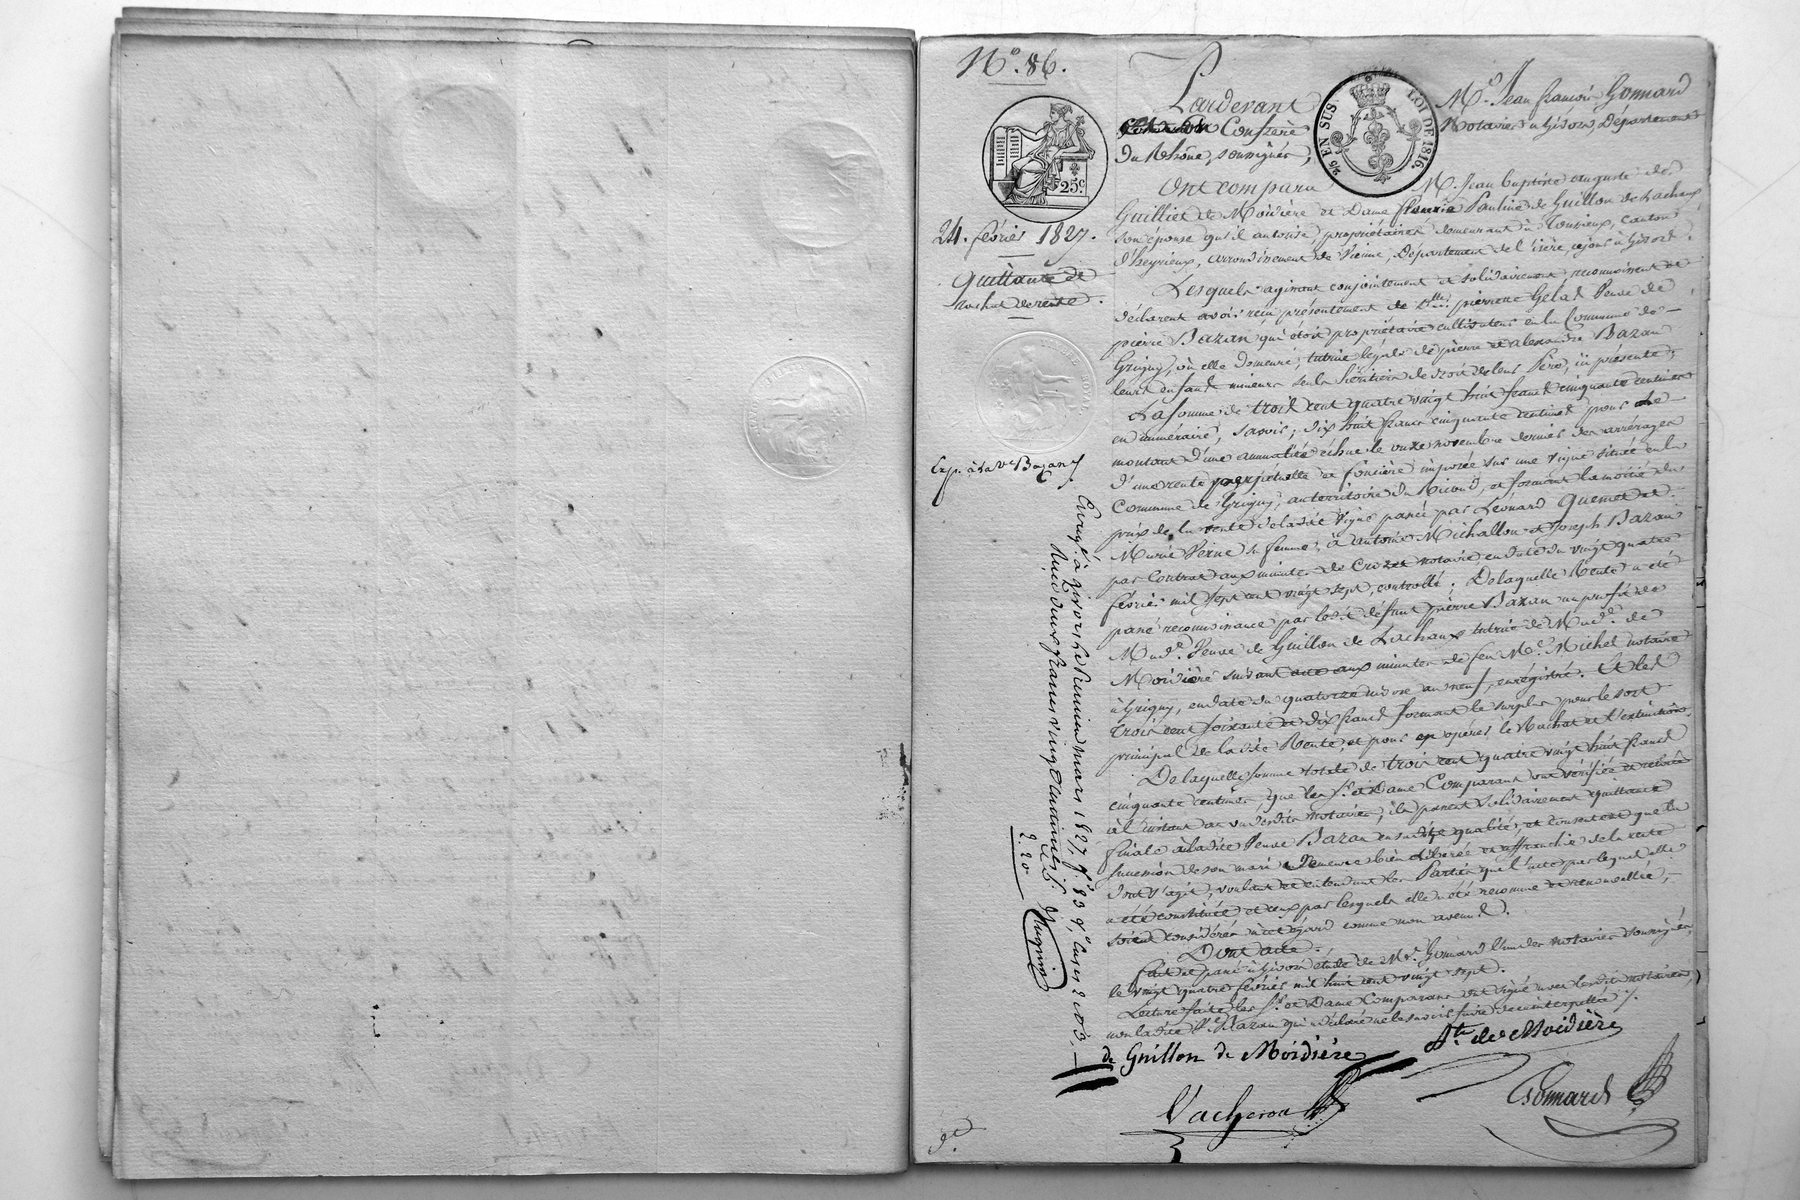 N.º 86.
25.c
24. février 1827.
Quittance de
rachat de rente.
Exp. à la Ve Bazan
2/5 EN SUS
LOI DE 1816.
Pardevant Me. Jean françois Gonnard
Confrère Notaires à Givors, Département
du Rhône, soussignés,
Ont comparu M. Jean Baptiste auguste de
Guilliet de Moidière et Dame Pauline de Guillon de Lachaux
son épouse qu'il autorise, propriétaires demeurant à canton
d'heyrieux, arrondissement de Vienne, Département de l'isère, à Givors.
Lesquels agissant conjointement et solidairement reconnaissent et
déclarent avoir reçu présentement de pierrette Gelas Veuve de
pierre Bazan qui étoit propriétaire cultivateur en la Commune de
Grigny, où elle demeure, tutrice légale de pierre et alexandre Bazan
leurs enfants mineurs seuls héritiers de droit de leur Père, ici présente,
La somme de trois cent quatre vingt huit francs cinquante centimes
en numéraire, savoir; dix huit francs cinquante centimes pour le
montant d'une annuité échue le onze novembre dernier des arrérages
d'une rente perpétuelle et foncière imposée sur une vigne située en la
Commune de Grigny, au territoire du et formant la moitié du
prix de la vente de ladite vigne passée par Léonard Quemet et
Marie Verne sa femme, à antoine Michallon et Joseph Bazan
par Contrat aux minutes de Crozet notaire en date du vingt quatre
février mil sept cent vingt sept, controllé; De laquelle Rente a été
passé reconnoissance par ledit défunt pierre Bazan au profit de
Made. Veuve de Guillon de Lachaux tutrice de Made. de
Moidière suivant acte aux minutes de feu Me. Michel notaire
à Grigny, en date du quatorze nivose an neuf, enrégistré. Et les
trois cent soixante et dix francs formant le surplus pour le sort
principal de ladite Rente, et pour en opérer le Rachat et l'extinction.
De laquelle somme totale de trois cent quatre vingt huit francs
cinquante centimes que les Sr. et Dame Comparants ont vérifiée et retirée
à l'instant au vu desdits notaires, ils passent solidairement quittance
finale à ladite Veuve Bazan en sadite qualité, et consentent que la
succession de son mari demeure bien libérée et affranchie de la rente
dont s'agit, voulant et entendant les Parties que l'acte par lequel elle
a été constituée et ceux par lesquels elle a été reconnue et renouvellée,
soient considérés à cet égard comme non avenus.
Dont acte.
fait et passé à Givors étude de Me. Gonnard l'un des notaires soussignés,
le vingt quatre février mil huit cent vingt sept.
Lecture faite les Sr. et Dame Comparants ont signé avec lesdits notaires,
non ladite Ve. Bazan qui a déclaré ne le savoir faire de ce interpellée.
de Guillon de Moidière
de Moidière
Vacheron
Gonnard
Enregé. à Givors le premier mars 1827, fo. 83
Reçu deux francs vingt centimes
2. 20